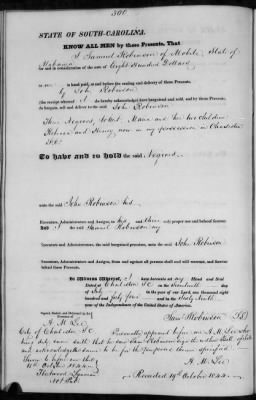 300
STATE OF SOUTH-CAROLINA.
KNOW ALL MEN by these Presents, That
I Samuel Robinson of Mobile, State of
Alabama
for and in consideration of the sum of Eight Hundred Dollars
to me in hand paid, at and before the sealing and delivery of these Presents,
by John Robinson
(the receipt whereof I do hereby acknowledge) have bargained and sold, and by these Presents,
do bargain, sell and deliver to the said John Robinson
Three Negroes, to Wit: and her two Children
Rebecca and Henry, now in my possession in Charleston
So. Ca.
To have and to hold the said Negroes
unto the said John Robinson his
Executors, Administrators and Assigns, to his and their only proper use and behoof forever.
And I the said Samuel Robinson my
Executors and Administrators, the said bargained premises, unto the said John Robinson
Executors, Administrators and Assigns, from and against all persons shall and will warrant, and forever
defend these Presents.
In Witness Whereof, I have hereunto set my Hand and Seal
Dated at Charleston So. Ca. on the day
of in the year of our Lord one thousand eight
hundred and forty four and in the Sixty Ninth
year of the Independence of the United States of America.
Saml Robinson
Signed, Sealed and Delivered
A. M. Lee
City of Charleston S.C. Personally appeared before me A. M. Lee who
Sworn to before me this
October 1844
A. M. Lee
Recorded 19th October 1844